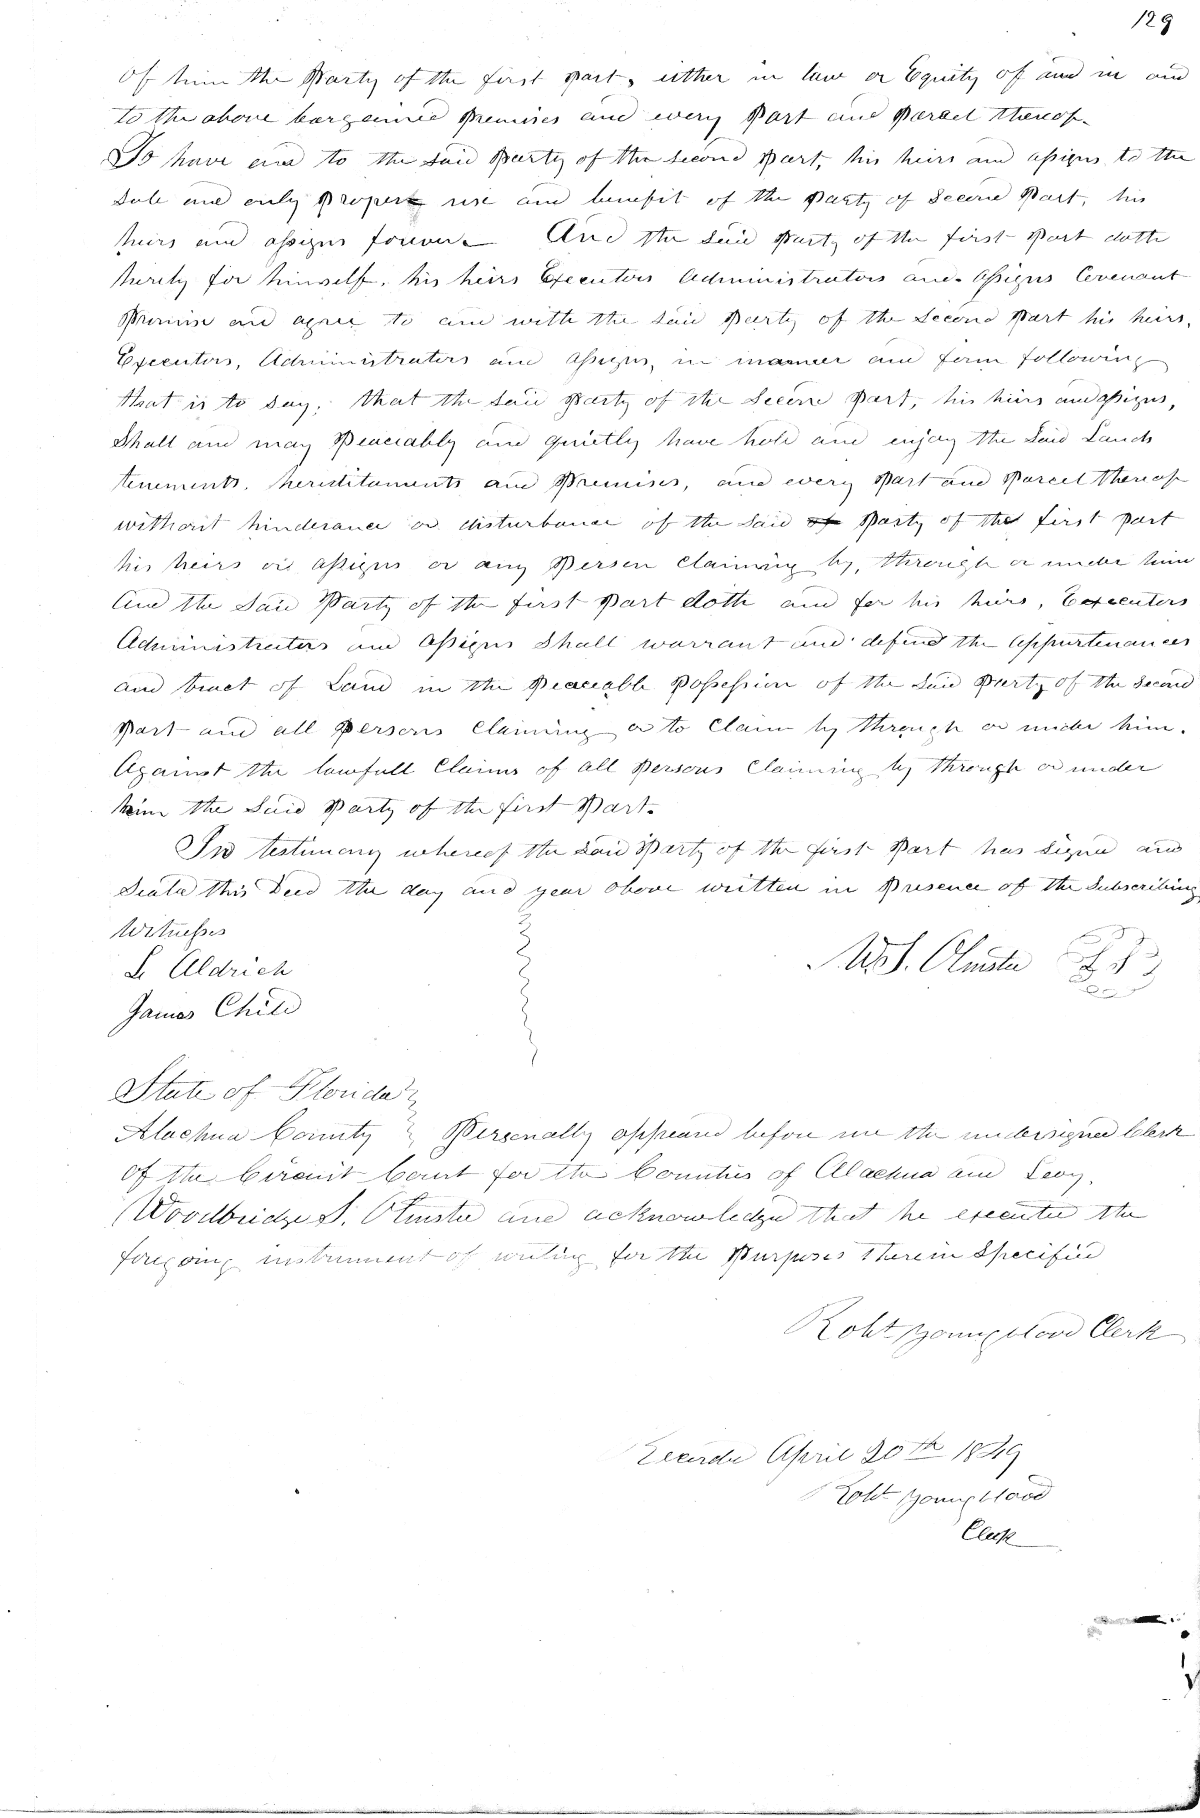 129
of him the Party of the first part, either in law or Equity of and in and
to the above bargained premises and every Part and Parcel thereof.
To have and to the said Party of the second Part, his heirs and assigns to the
sole and only proper use and benefit of the Party of Second Part, his
heirs and assigns forever. And the said Party of the first Part doth
hereby for himself, his heirs Executors Administrators and assigns Covenant
Promise and agree to and with the said Party of the Second Part his heirs,
Executors, Administrators and assigns, in manner and form following
that is to say, that the said Party of the Second Part, his heirs and assigns,
Shall and may Peaceably and quietly have hold and enjoy the Said Lands
tenements, hereditaments and Premises, and every Part and Parcel thereof
without hinderance or disturbance of the said of Party of the first part
his heirs or assigns or any Person claiming by, through or under him
And the said Party of the first Part doth and for his heirs, Executors
Administrators and assigns Shall warrant and defend the appurtenances
and tract of Land in the Peaceable Possession of the Said Party of the Second
Part and all Persons Claiming or to Claim by through or under him.
Against the lawfull Claims of all Persons Claiming by through or under
him the Said Party of the first Part.
In testimony whereof the said Party of the first Part has Signed and
Seald this Deed the day and year above written in Presence of the Subscribing
Witnesses
L Aldrich
W. S. Olmsted L S
James Child
State of Florida
Alachua County Personally appeared before me the undersigned Clerk
of the Circuit Court for the Counties of Alachua and Levy,
Woodbridge S. Olmsted and acknowledged that he executed the
foregoing instrument of writing for the Purposes therein Specified
Robt Youngblood Clerk
Recorded April 20th 1849
Robt Youngblood
Clerk